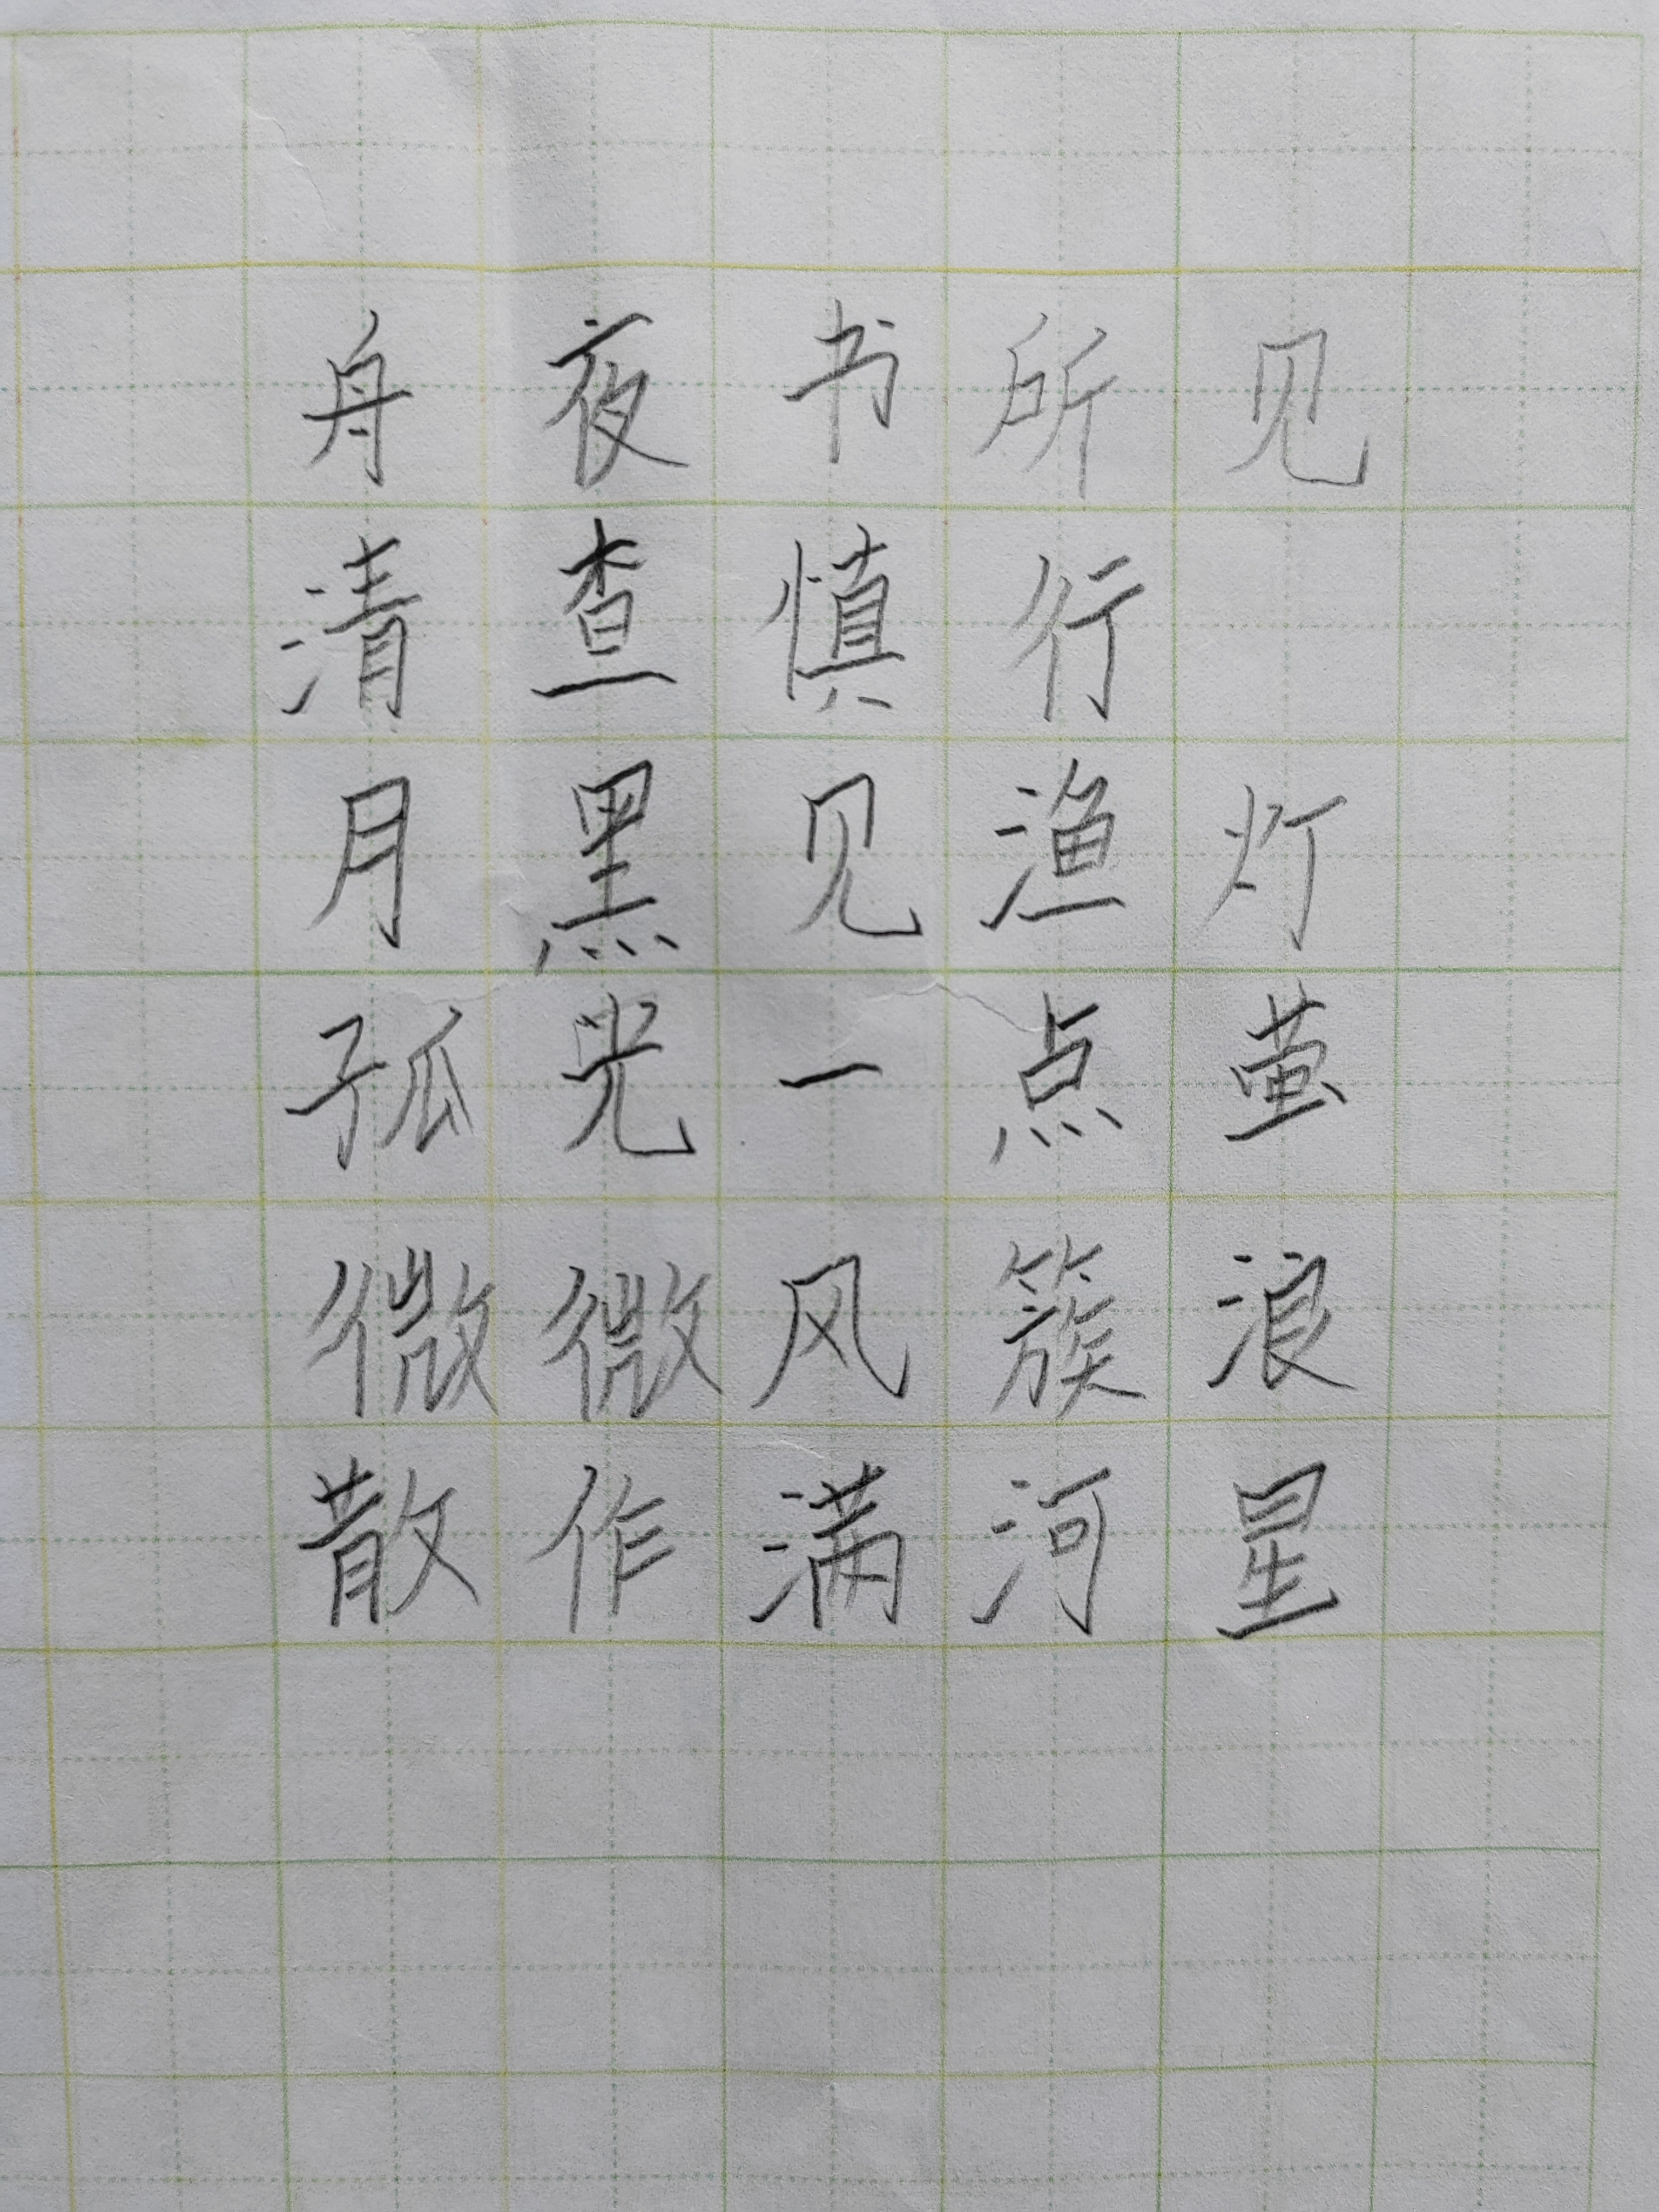 舟夜书所见
清查慎行
月黑见渔灯
孤光一点萤
微微风簇浪
散作满河星